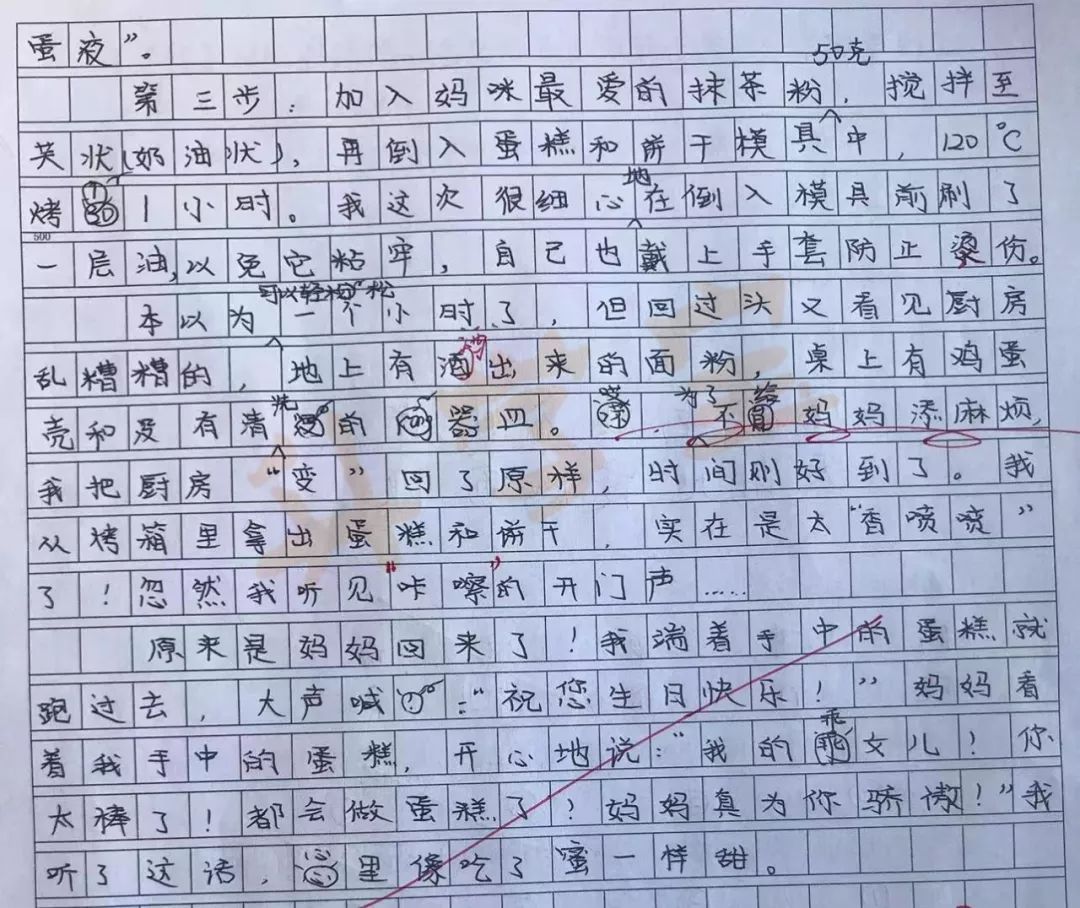 蛋液”。
第三步：加入妈咪最爱的抹茶粉50克，搅拌至
芡状(奶油状)，再倒入蛋糕和饼干模具中，120℃
烤1小时。我这次很细心地在倒入模具前刷了
500
一层油，以免它粘牢，自己也戴上手套防止烫伤。
本以为可以轻松一个小时了，但回过头又看见厨房
乱糟糟的，地上有洒出来的面粉，桌上有鸡蛋
壳和及有清洗的器皿。为了不给妈妈添麻烦，
我把厨房“变”回了原样，时间刚好到了。我
从烤箱里拿出蛋糕和饼干，实在是太“香喷喷”
了！忽然我听见“咔嚓”的开门声……
原来是妈妈回来了！我端着手中的蛋糕就
跑过去，大声喊：“祝您生日快乐！”妈妈看
着我手中的蛋糕，开心地说：“我的乖女儿！你
太棒了！都会做蛋糕了！妈妈真为你骄傲！”我
听了这话，心里像吃了蜜一样甜。